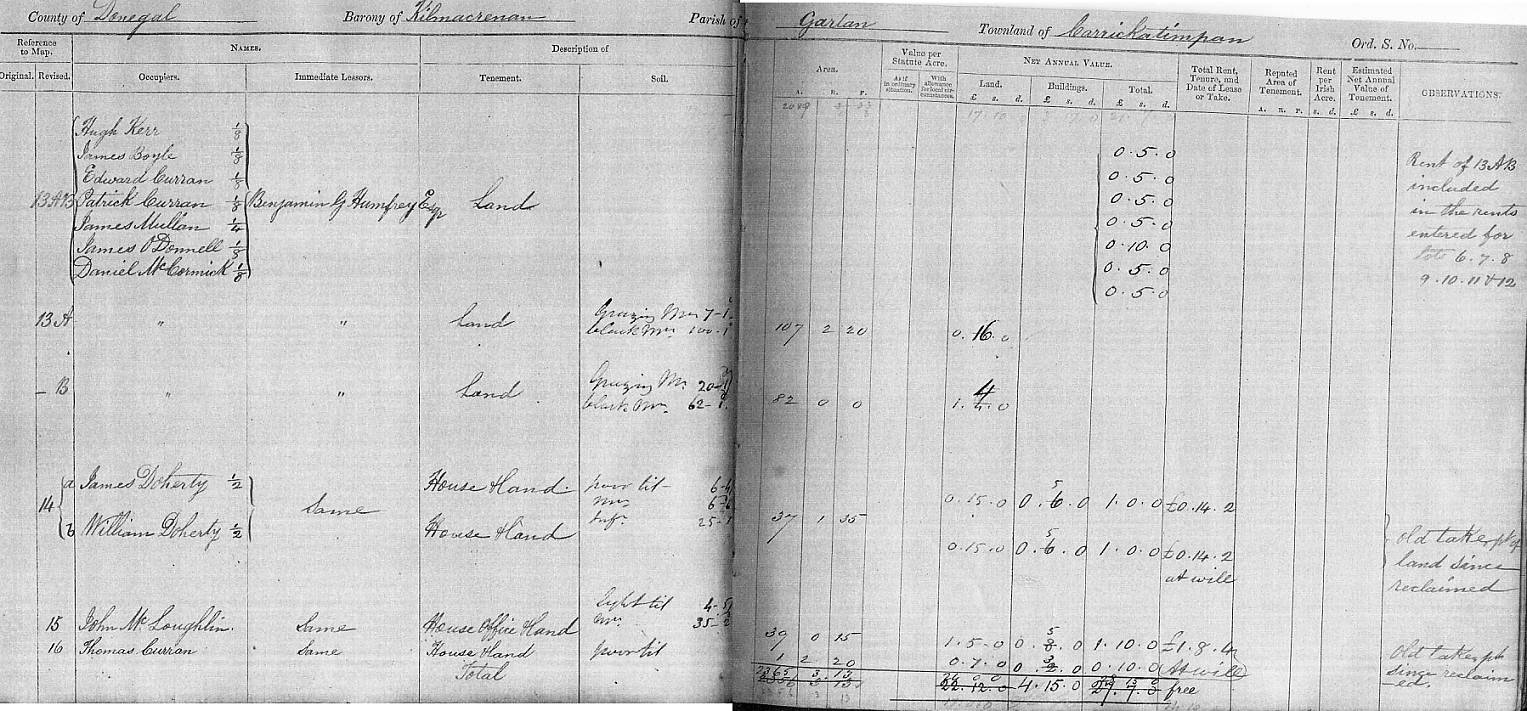 County of Donegal Barony of Kilmacrenan Parish of Gartan Townland of Carrickatimpan Ord. S. No.
Reference to Map. NAMES. Description of Area. Value per Statute Acre. NET ANNUAL VALUE. Total Rent, Tenure, and Date of Lease or Take. Reputed Area of Tenement. Rent per Irish Acre. Estimated Net Annual Value of Tenement. OBSERVATIONS.
Original. Revised. Occupiers. Immediate Lessors. Tenement. Soil. As if in ordinary situation. With allowance for local circumstances. Land. Buildings. Total.
A. R. P. £ s. d. £ s. d. £ s. d. A. R. P. s. d. £ s. d.
Hugh Kerr 1/8 0.5.0
James Boyle 1/8 0.5.0
Edward Curran 1/8 0.5.0
13AB Patrick Curran 1/8 Benjamin G Humfrey Esqr Land 0.5.0
James Mullan 1/4 0.10.0
James O'Donnell 1/8 0.5.0
Daniel McCormick 1/8 0.5.0
Rent of 13AB
included
in the rents
entered for
lots 6.7.8
9.10.11 & 12
13A " " Land Grazing Mn 7-1
black Mn 100-1 107 2 20 0.16.0
- B " " Land Grazing Mn 20-
black Mn 62-1 82 0 0 1.4.0
14 a James Doherty 1/2 Same House & Land poor til 0.15.0 0.5.0 1.0.0 £0.14.2
37 1 35
b William Doherty 1/2 House & Land 25-1 0.15.0 0.5.0 1.0.0 £0.14.2
at will
Old take pt of
land since
reclaimed
light til 4-5
15 John McLoughlin Same House Office & Land 35-2 39 0 15 1.5.0 0.5.0 1.10.0 £1.8.4
16 Thomas Curran Same House & Land poor til 1 2 20 0.7.0 0.3.0 0.10.0 (At will)
Total 22.12.0 4.15.0 27.7.0 free
Old take pt
since reclaim
-ed.